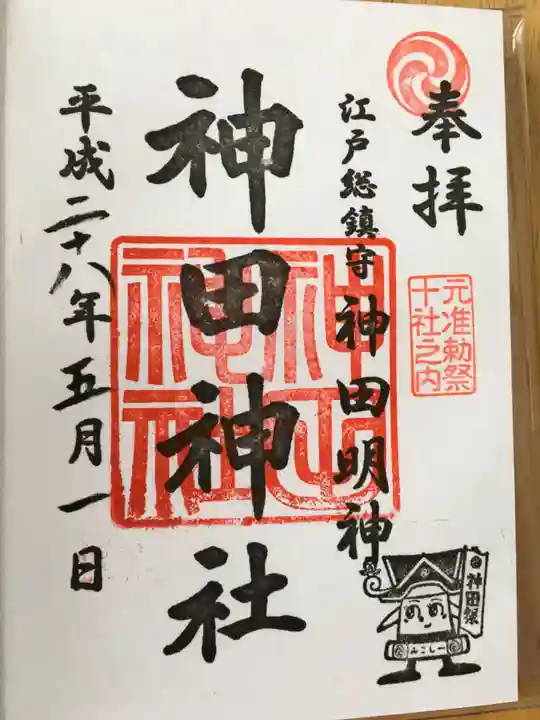 奉拝
元准勅祭
十社之内
江戸総鎮守 神田明神
神田神社
神田
神社
平成二十八年五月一日
神田祭
みこしー